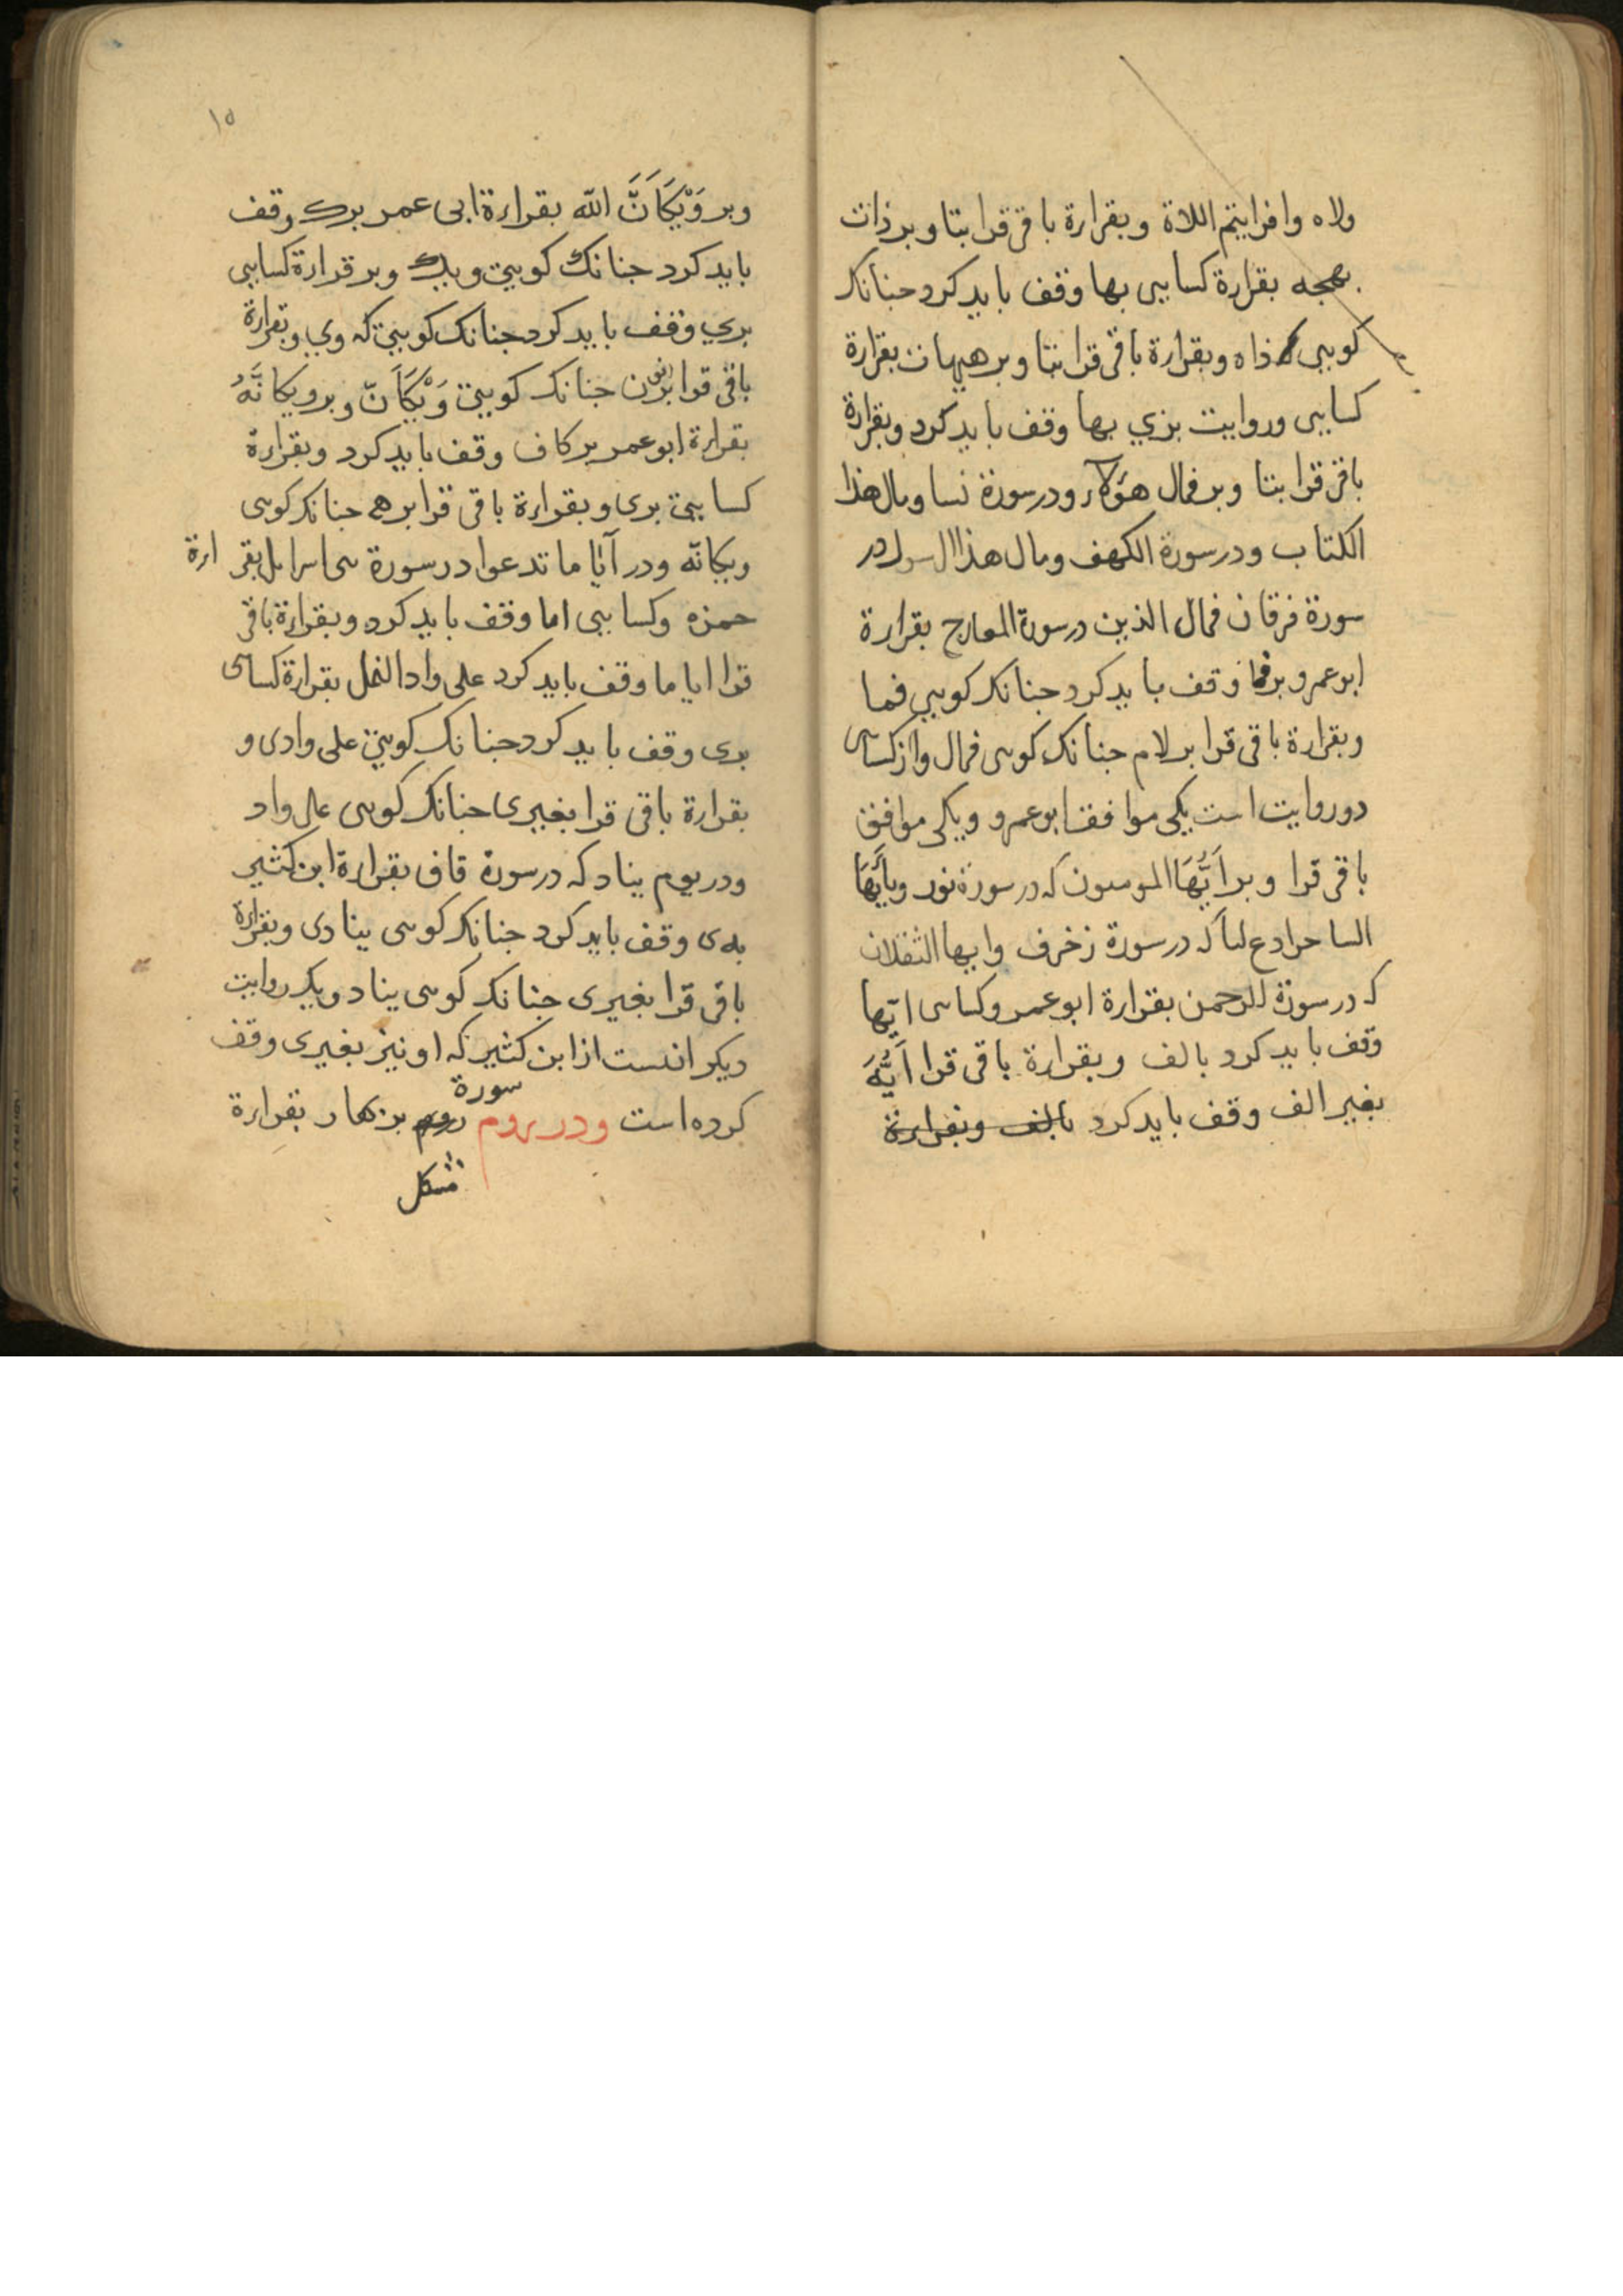 ولاه وافرایتم اللاة وبقراءة باقی قرا بتا وبر ذات
بهجه بقراءة کسایی بها وقف باید کرد جنانک
کویی ذاه وبقراءة باقی قرا بتا وبر هیهات بقراءة
کسایی وروایت بزي بها وقف باید کرد وبقراءة
باقی قرا بتا وبر فمال هؤلاء ودرسورة نسا ومال هذا
الکتاب ودرسورة الکهف ومال هذا الرسول در
سورة فرقان فمال الذین درسورة المعارج بقراءة
ابوعمرو برفما وقف باید کرد جنانک کویی فما
وبقراءة باقی قرا بر لام جنانک کویی فمال واز کسایی
دو روایت است یکی موافقت ابوعمرو ویکی موافق
باقی قرا وبر اَیُّهَا المومنون که درسورة نور ویاَیُّهَا
الساحر ادع لنا که درسورة زخرف وایها الثقلان
که درسورة الرحمن بقراءة ابوعمرو وکسایی ایّها
وقف باید کرد بالف وبقراءة باقی قرا اَیُّهَ
بغیر الف وقف باید کرد بالف وبقراءة
١٥
وبر وَیْکَاَنَّ الله بقراءة ابی عمر برک وقف
باید کرد جنانک کویی ویک وبر قراءة کسایی
بري وقف باید کرد جنانک کویی که وي وبقراءة
باقی قرا برن جنانک کویی وَیْکَاَنّ وبر ویکانَّهُ
بقراءة ابوعمر بر کاف وقف باید کرد وبقراءة
کسایی بری وبقراءة باقی قرا بر هی جنانک کویی
ویکانّه ودر اَیّا ما تدعوا درسورة بنی اسرایل بقراءة
حمزه وکسایی اما وقف باید کرد وبقراءة باقی
قرا ایا ما وقف باید کرد علی واد النمل بقراءة کسایی
بری وقف باید کرد جنانک کویی علی وادی و
بقراءة باقی قرا بغیری جنانک کویی علی واد
ودر یوم یناد که درسورة قاف بقراءة ابن کثیر
به ی وقف باید کرد جنانک کویی ینادی وبقراءة
باقی قرا بغیری جنانک کویی یناد ویک روایت
دیکر انست از ابن کثیر که او نیز بغیری وقف
کرده است ودر بروم سورة روم بقراءة
مشکل